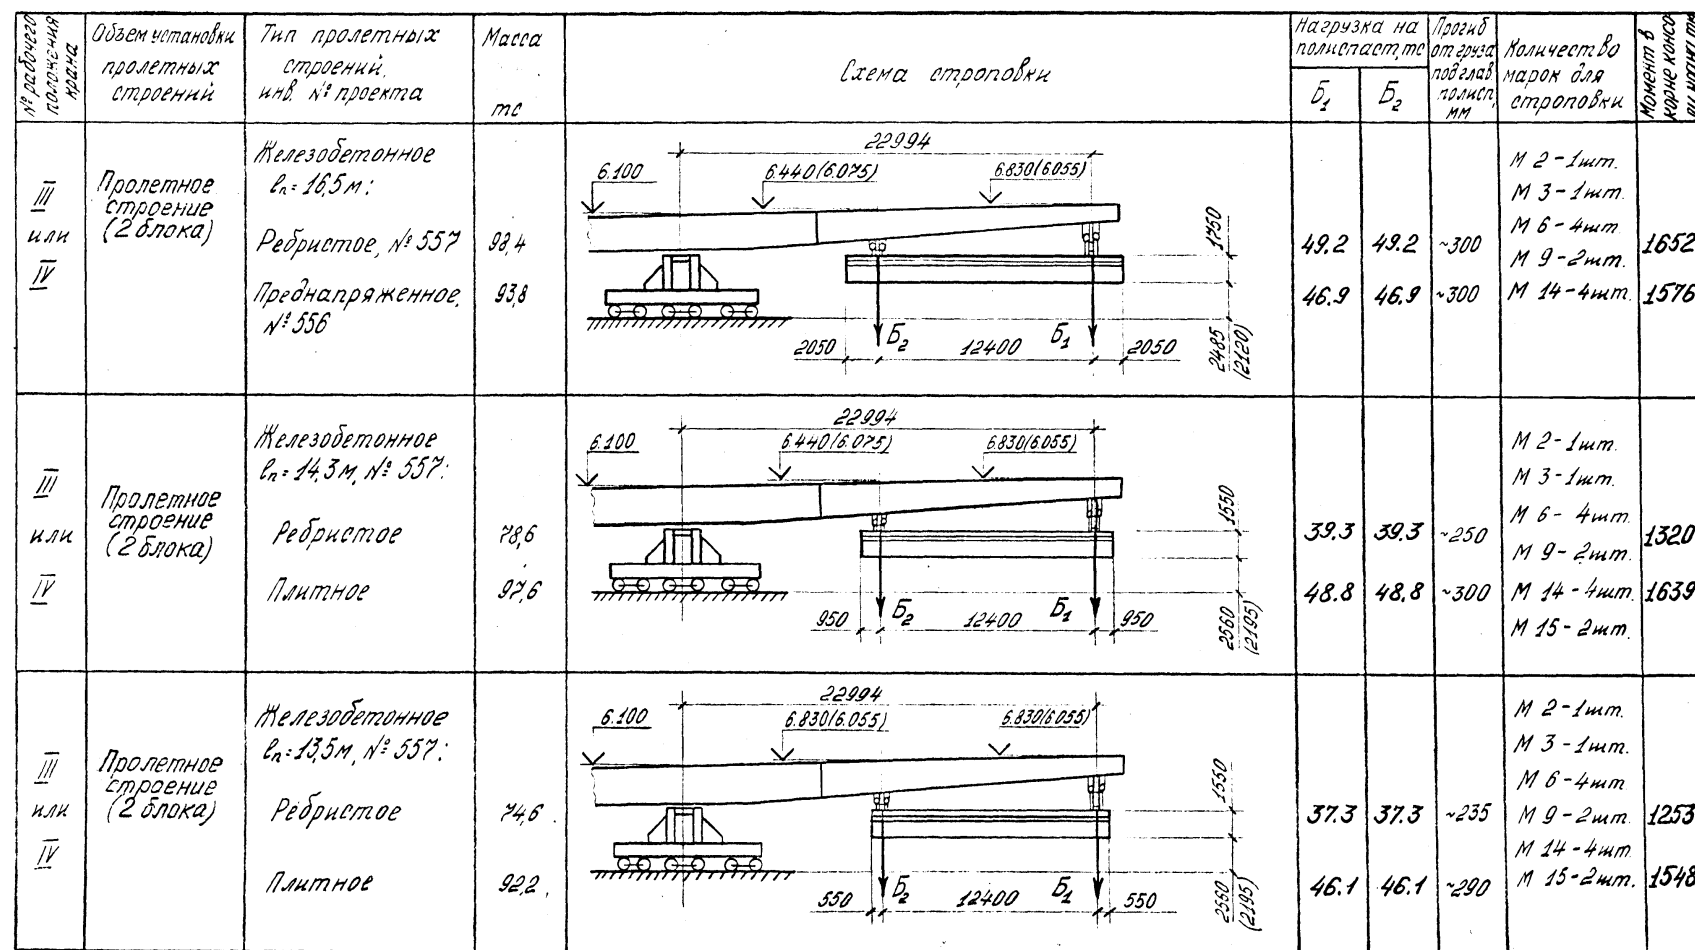 № рабочего
положения
крана
Объем установки
пролетных
строений
Тип пролетных
строений,
инв. № проекта
Масса
тс
Схема строповки
Нагрузка на
полиспаст, тс
Б₁
Б₂
Прогиб
от груза
под глав.
полисп.,
мм
Количество
марок для
строповки
Момент в
корне консо-
III
или
IV
Пролетное
строение
(2 блока)
Железобетонное
ℓп = 16,5 м:
Ребристое, № 557
98,4
Преднапряженное,
№ 556
93,8
22994
6.100
6.440(6.075)
6.830(6.055)
1750
2485
(2120)
2050
Б₂
12400
Б₁
2050
49.2
49.2
~300
46.9
46.9
~300
М 2-1шт.
М 3-1шт.
М 6-4шт.
М 9-2шт.
М 14-4шт.
1652
1576
III
или
IV
Пролетное
строение
(2 блока)
Железобетонное
ℓп = 14,3 м, № 557:
Ребристое
78,6
Плитное
97,6
22994
6.100
6.440(6.075)
6.830(6.055)
1550
2560
(2195)
950
Б₂
12400
Б₁
950
39.3
39.3
~250
48.8
48.8
~300
М 2-1шт.
М 3-1шт.
М 6- 4шт.
М 9- 2шт.
М 14-4шт.
М 15-2шт.
1320
1639
III
или
IV
Пролетное
строение
(2 блока)
Железобетонное
ℓп = 13,5 м, № 557:
Ребристое
74,6
Плитное
92,2
22994
6.100
6.830(6.055)
6.830(6.055)
1550
2560
(2195)
550
Б₂
12400
Б₁
550
37.3
37.3
~235
46.1
46.1
~290
М 2-1шт.
М 3-1шт.
М 6-4шт.
М 9-2шт.
М 14-4шт.
М 15-2шт.
1253
1548